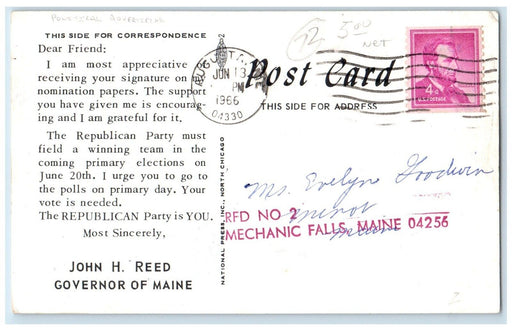 POLITICAL ADVERTISING
THIS SIDE FOR CORRESPONDENCE
Dear Friend:
I am most appreciative of
receiving your signature on my
nomination papers. The support
you have given me is encourag-
ing and I am grateful for it.
The Republican Party must
field a winning team in the
coming primary elections on
June 20th. I urge you to go to
the polls on primary day. Your
vote is needed.
The REPUBLICAN Party is YOU.
Most Sincerely,
JOHN H. REED
GOVERNOR OF MAINE
NATIONAL PRESS, INC., NORTH CHICAGO
AUGUSTA
JUN 13
PM
1966
04330
12 5.00
NET
Post Card
THIS SIDE FOR ADDRESS
4¢
U.S. POSTAGE
Ms. Evelyn Goodwin
RFD NO 2
Minot
MECHANIC FALLS, MAINE 04256
Maine